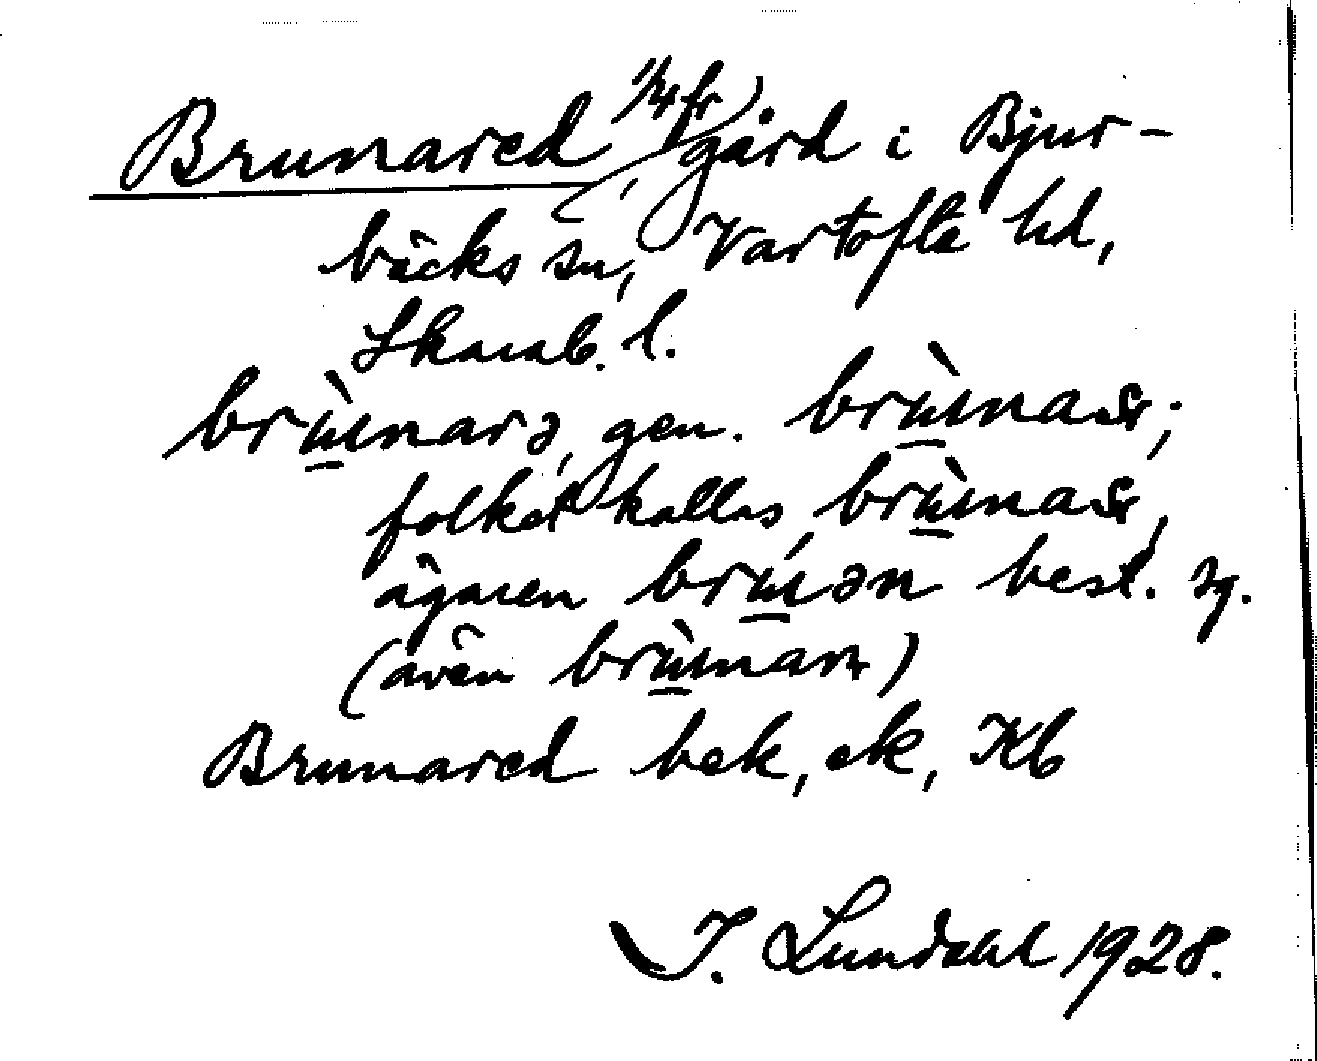 Brunared 1/4 fr, gård i Bjur-
bäcks sn, Vartofta hd,
Skarab. l.
brùnarə, gen. brùnas;
folket kallas brùnas,
ägaren brúnən best. sg.
(även brùnarn)
Brunared bek, ek, Kb
I. Lundahl 1928.